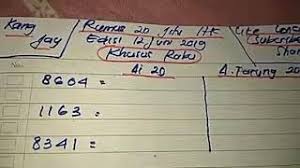 Kang Jay
Rumus 20 Jitu HK
Edisi 12 Juni 2019
Khusus Rabu
Like
Subscribe
Share
Ai 20
A. Tarung 20
8604 =
1163 =
8341 =